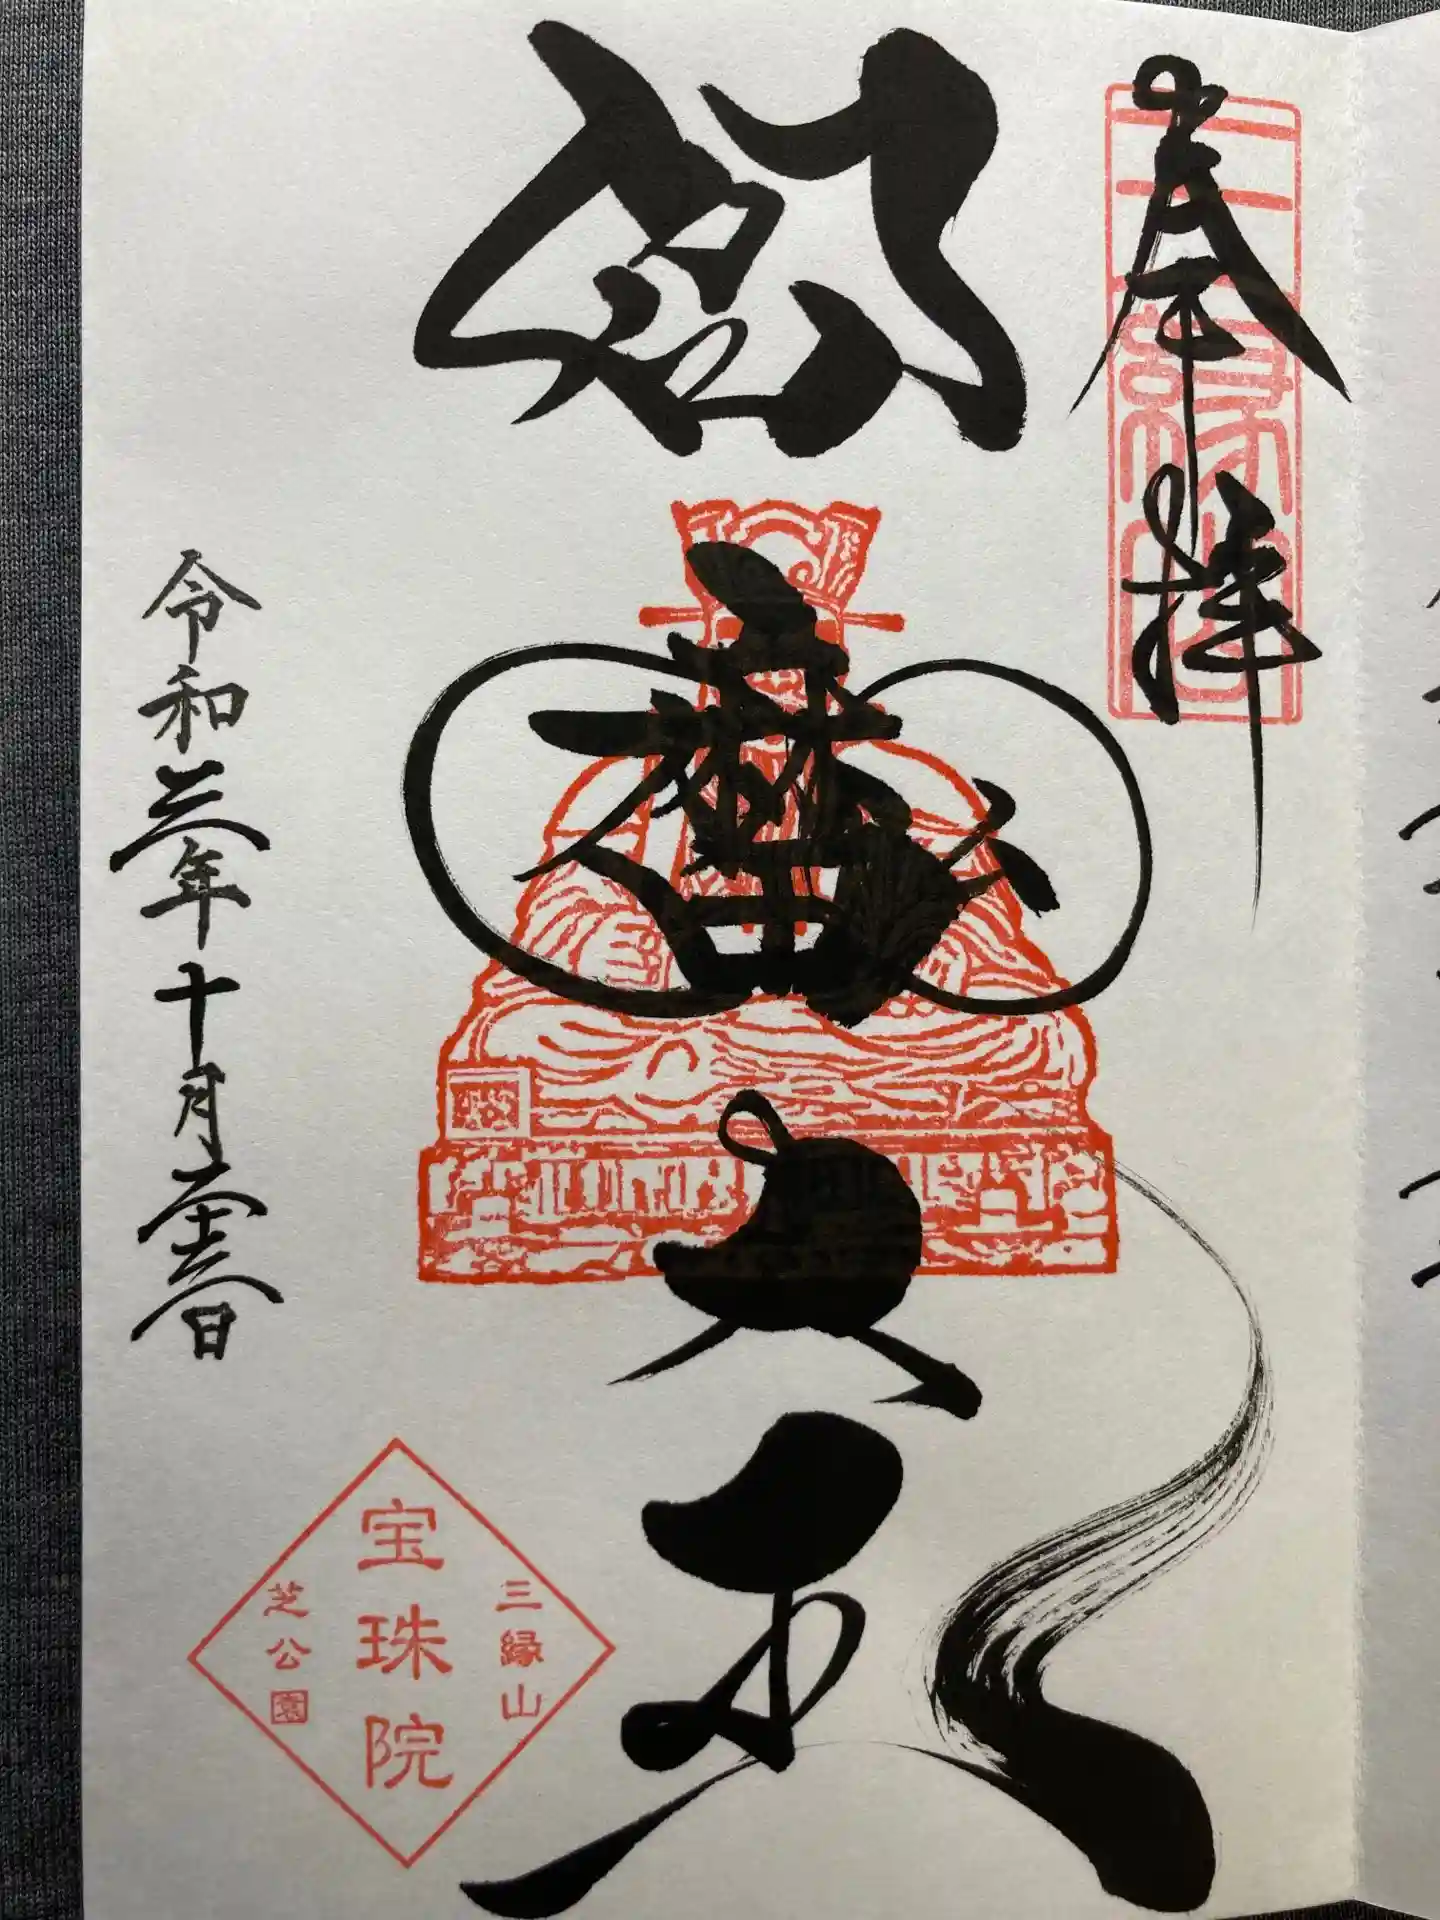 奉拝
三縁山
閻魔大王
令和三年十月二十三日
三縁山
宝珠院
芝公園